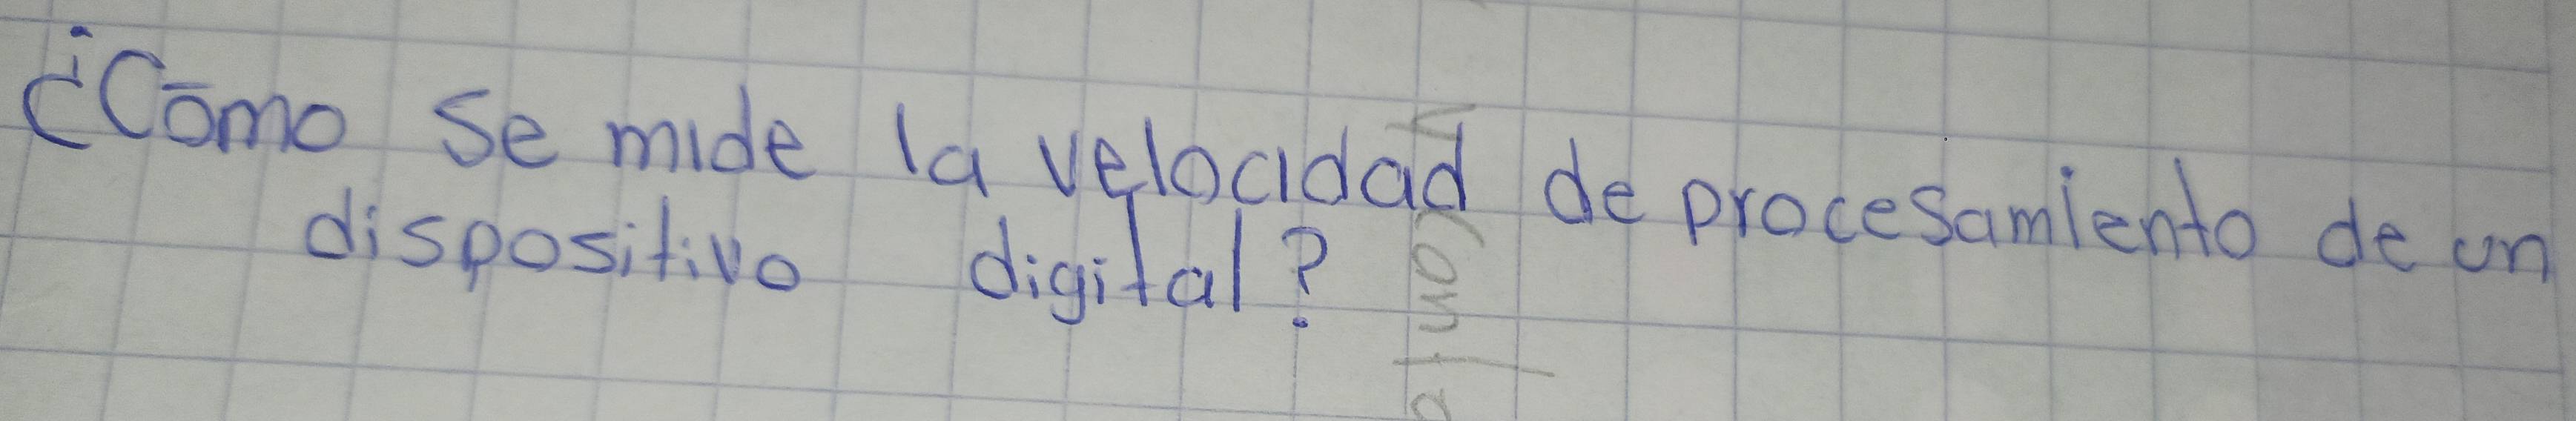 ¿Cómo se mide la velocidad de procesamiento de un
dispositivo digital?